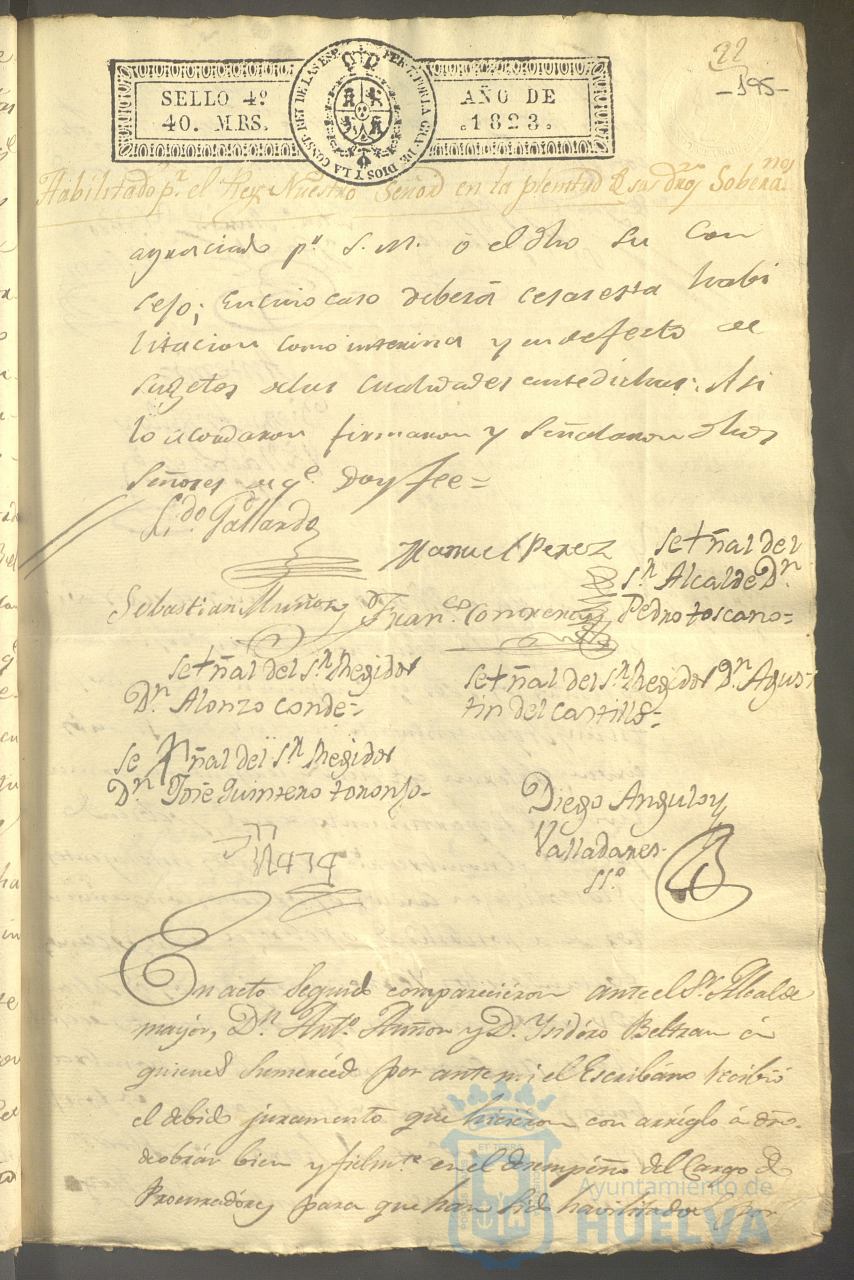 22
-195-
SELLO 4º
40. MRS.
AÑO DE
.1823.
Habilitado pr. el Rey Nuestro Señor en la plenitud de sus dros Soberanos
agraciado pr. S. M. ó el dho su Con
sejo; en cuio caso deberá cesar esta habi
litacion como interina y en defecto de
sugetos de las cualidades antedichas: Asi
lo acordaron firmaron y señalaron dhos
Señores de qe. doy fee=
Ldo. Gallardo
Manuel Perez
Se+ñal del
Sr. Alcalde Dn.
Pedro toscano=
Sebastian Muñoz
Franco. Contreras
Se+ñal del Sr. Regidor
Dn. Alonzo conde=
Se+ñal del Sr. Regidor Dn. Agus
tin del castillo=
Se+ñal del Sr. Regidor
Dn. José Quintero toronjo-
Diego Angulo y
Valladares
SSo.
En acto seguido comparecieron ante el Sr. Alcalde
mayor, Dn. Anto. Muñoz y D. Ysidóro Beltran á
quienes su merced por ante mi el Escribano recibió
el debido juramento que hicieron con arréglo á dro.
de obrár bien y fielmte. en el desempeño del Cargo de
Procuradóres para que han sido havilitados y por
Ayuntamiento de
HUELVA